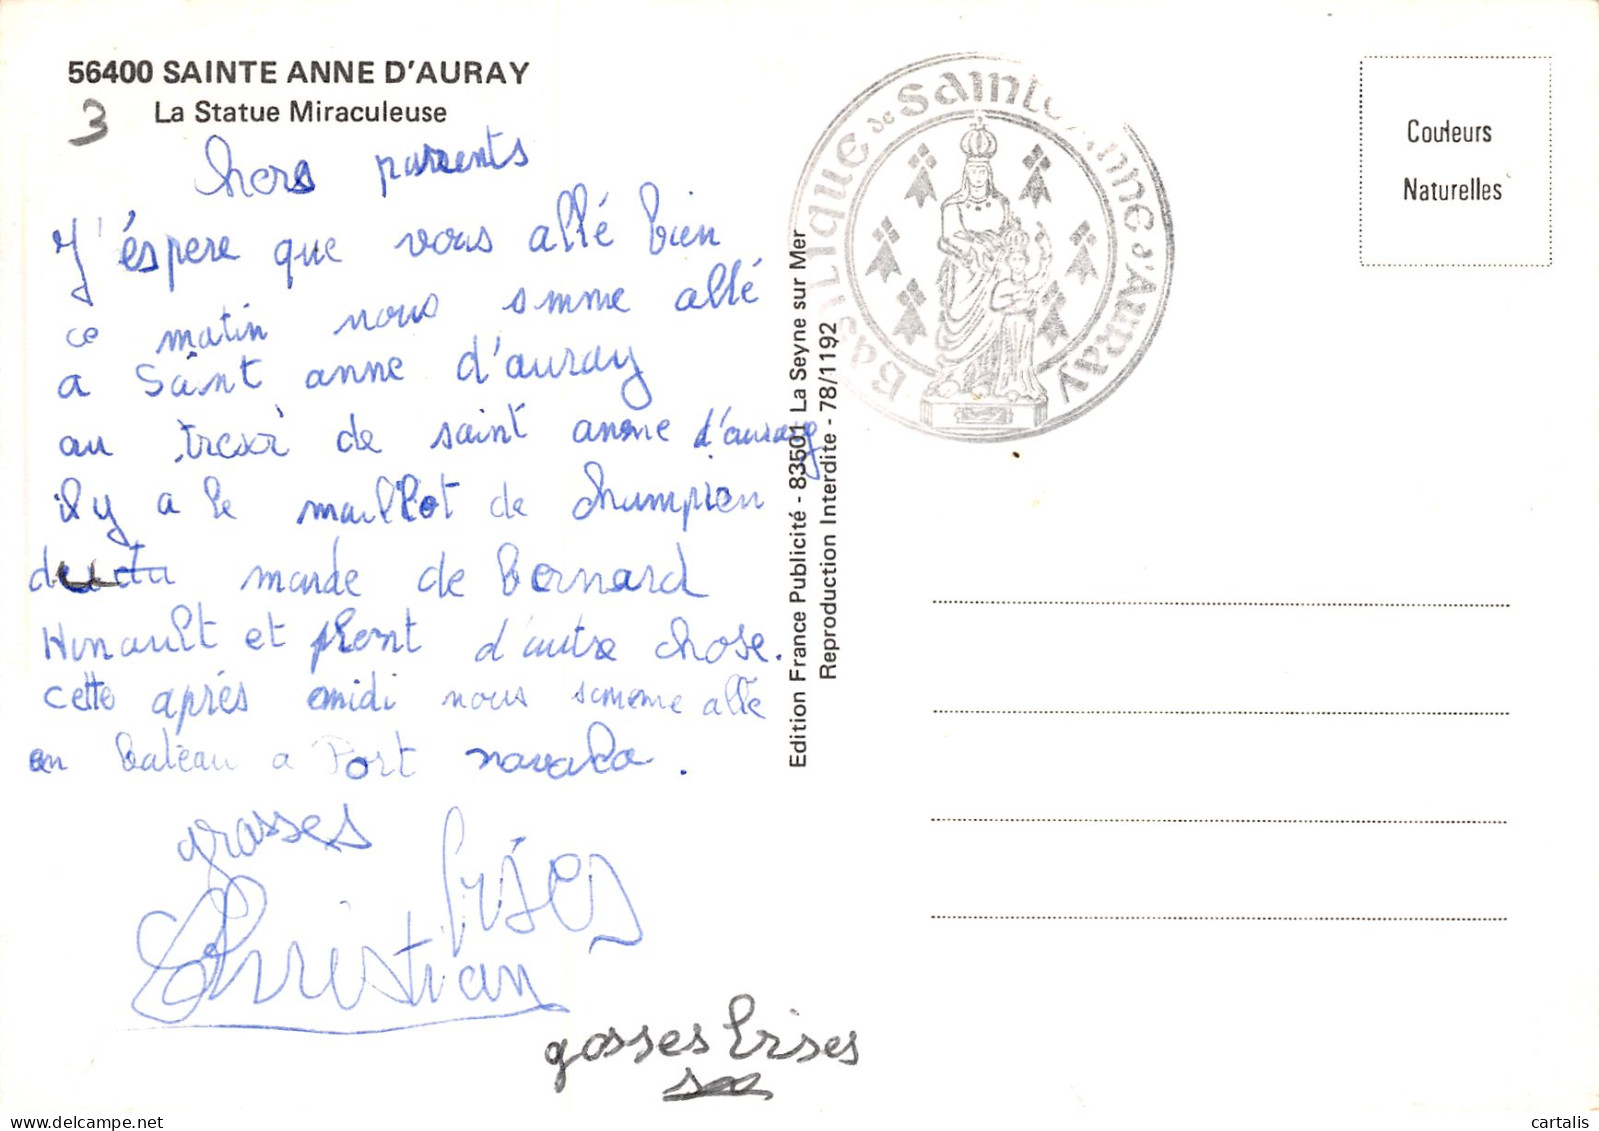 56400 SAINTE ANNE D'AURAY
3 La Statue Miraculeuse
chers parents
J'éspere que vous allé bien
ce matin nous somme allé
a Saint anne d'auray
au tresor de saint anne d'auray
il y a le maillot de champion
du monde de Bernard
Hinault et plent d'autre chose.
cette aprés midi nous somme allé
en bateau a Port navalo.
grosses
bises
Christian
gosses bises
Basilique de Sainte Anne d'Auray
Edition France Publicité - 83501 La Seyne sur Mer
Reproduction Interdite - 78/1192
Couleurs
Naturelles
delcampe.net
cartalis